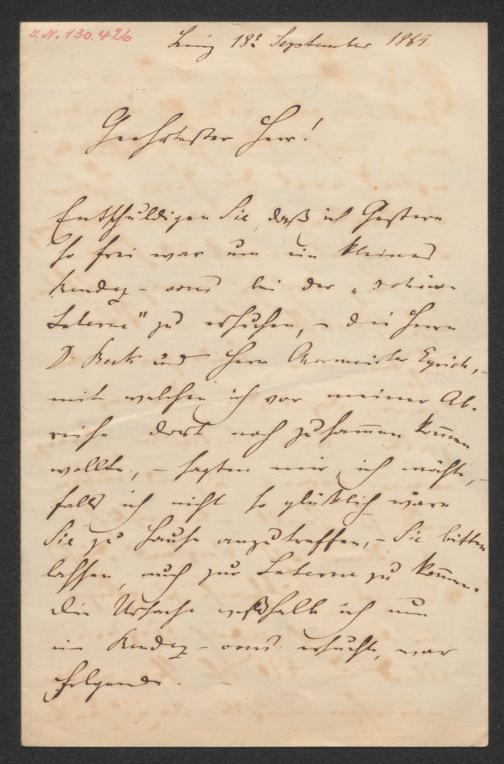 I.N. 130.426
Linz 18t September 1869
Geehrtester Herr!
Entschuldigen Sie, daß ich Gestern
so frei war um ein kleines
Rendez-vous bei der „schönen
Laterne" zu ersuchen, – die Herrn
D. Beck und Herr Chormeister
mit welchen ich vor meiner Ab-
reise dort noch zusammen kommen
wollte, – sagten mir, ich möchte, –
falls ich nicht so glücklich wäre
Sie zu Hause anzutreffen, – Sie bitten
lassen, auch zur Laterne zu kommen.
Die Ursache weßhalb ich um
ein Rendez-vous ersuchte, war
folgende. –